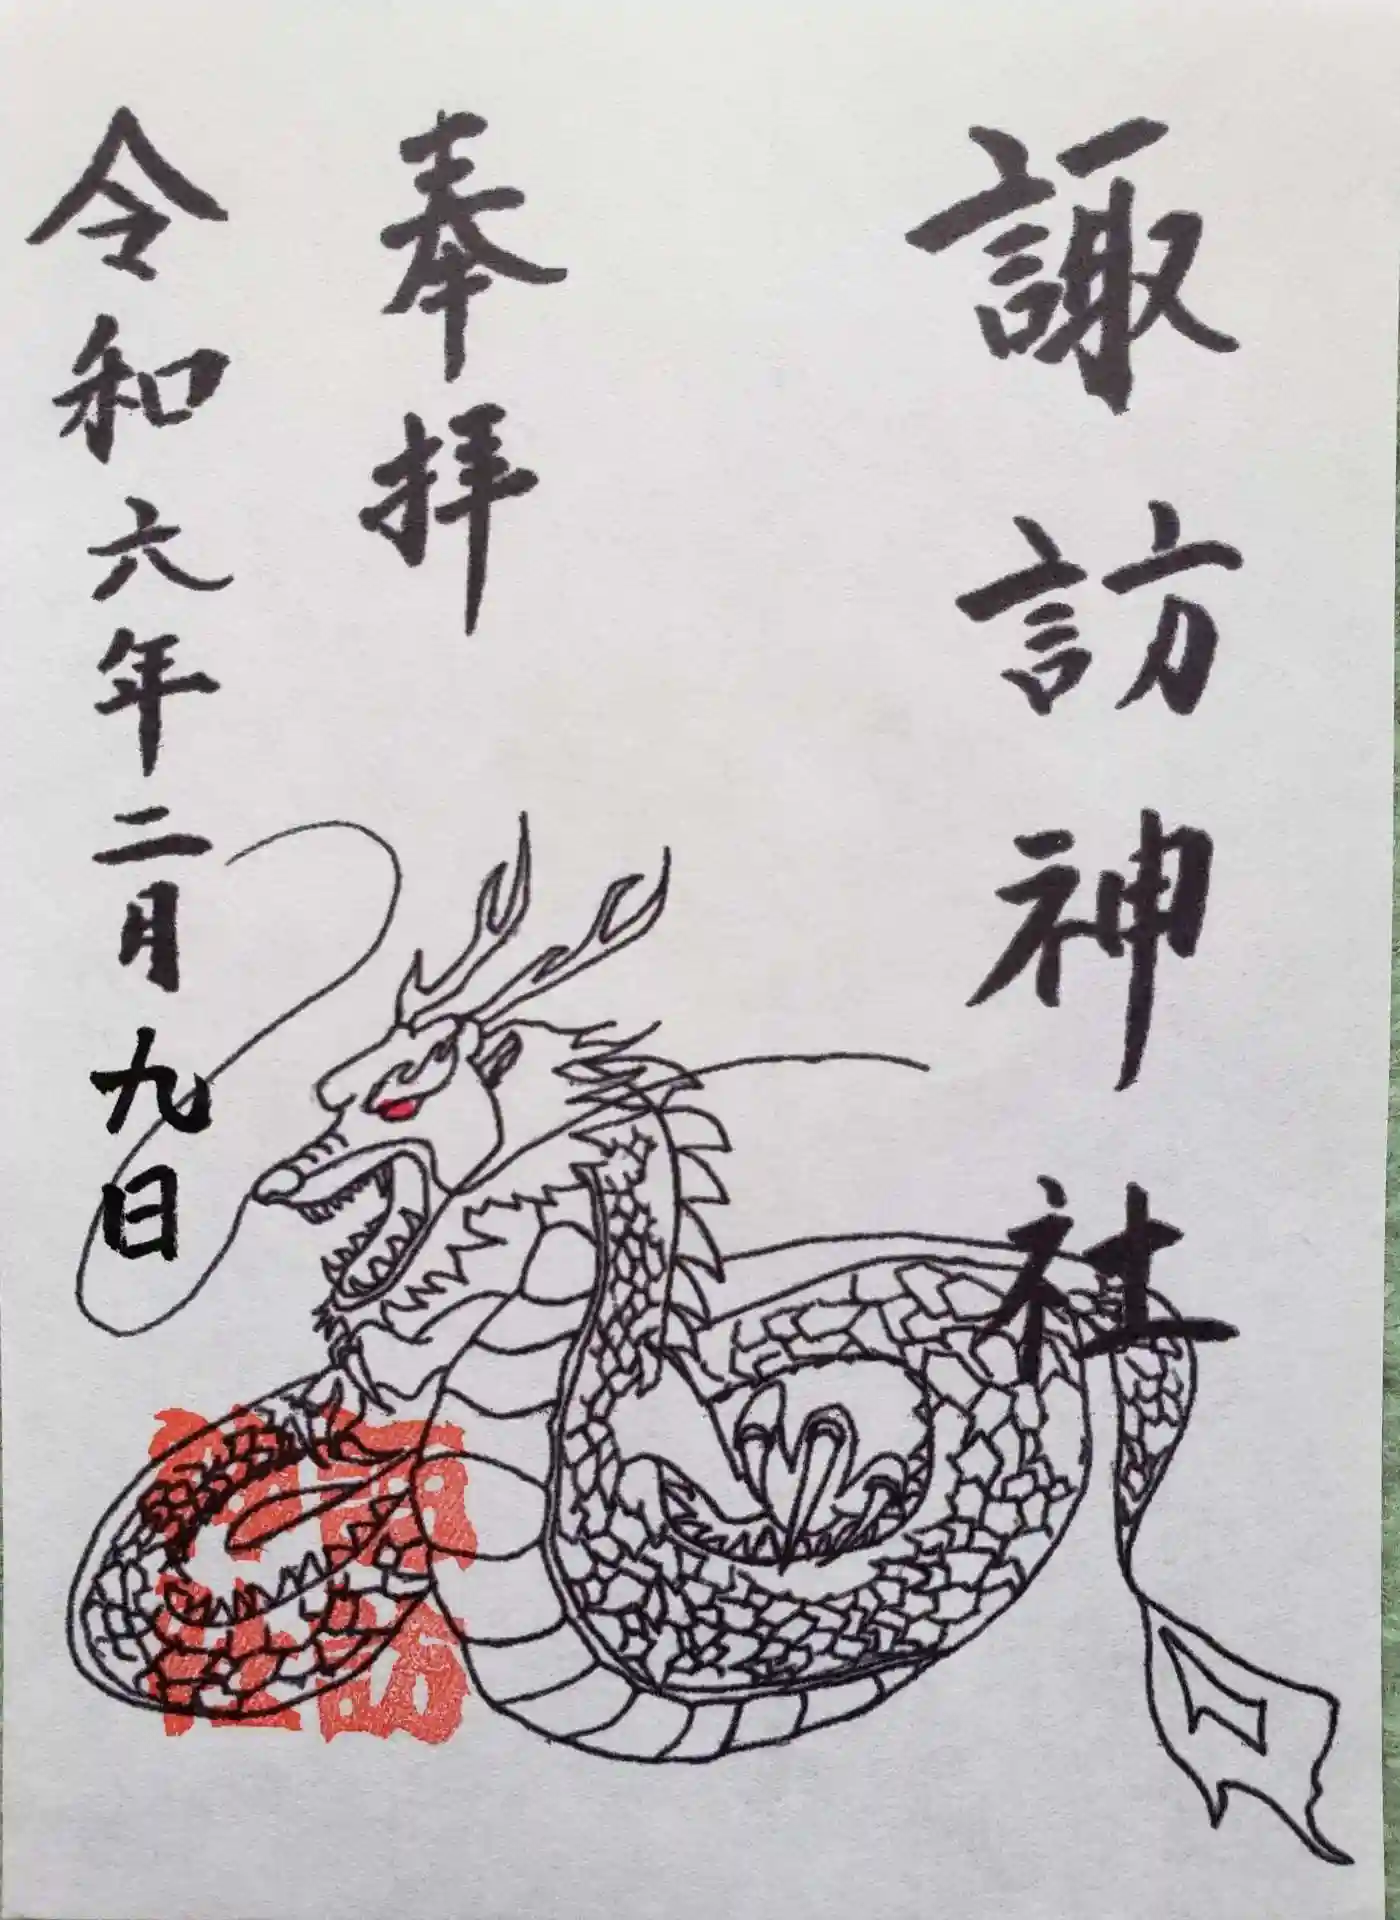 諏訪神社
奉拝
令和六年二月九日